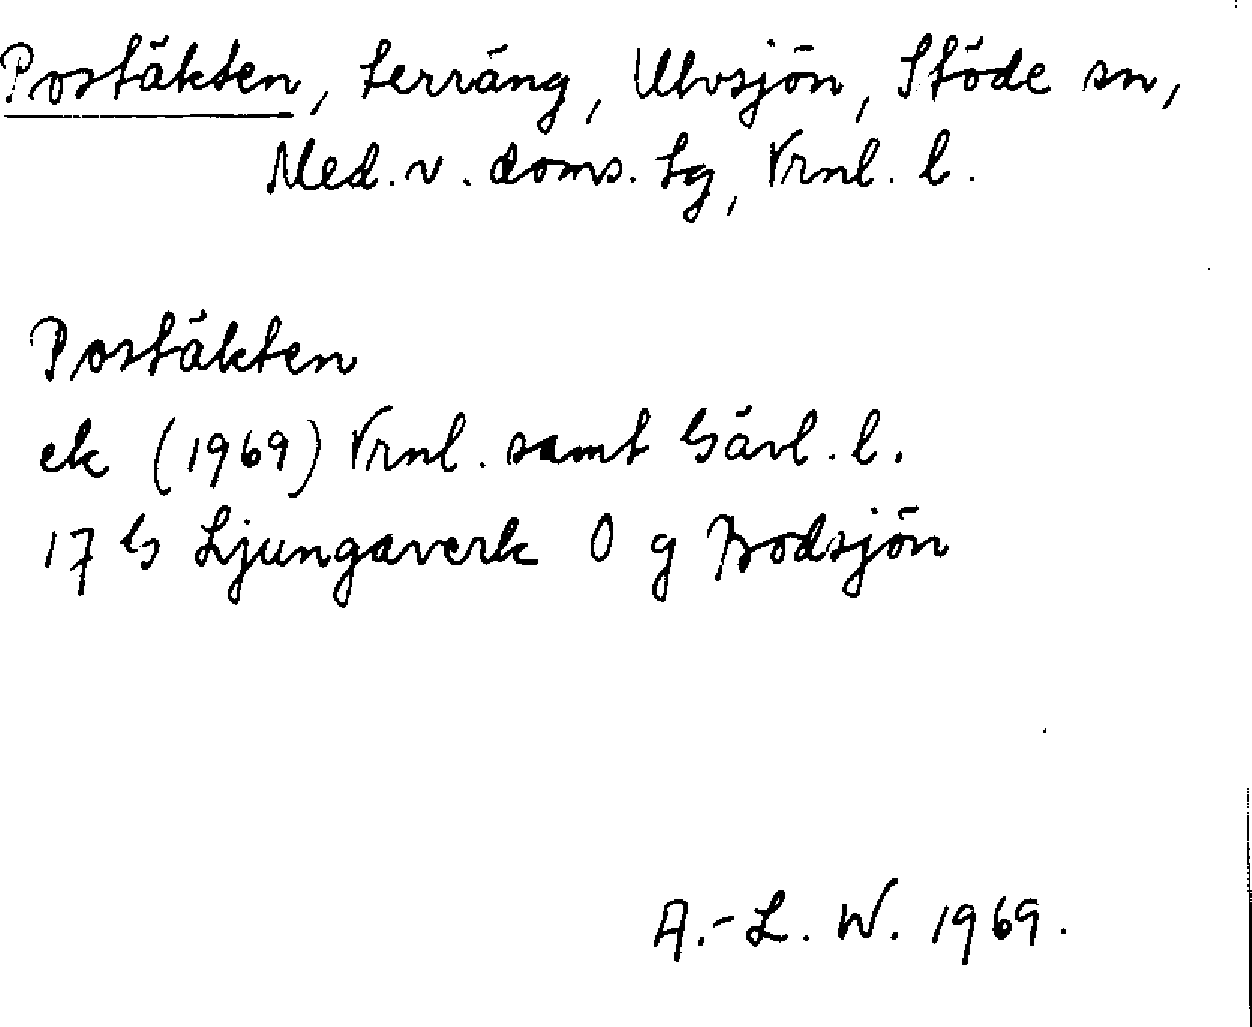 Postäkten, terräng, Ulvsjön, Stöde sn,
Med. v. doms. tg, Vrnl. l.
Postäkten
ek (1969) Vrnl. samt Gävl. l.
17 G Ljungaverk 0 g Bodsjön
A.-L. W. 1969.